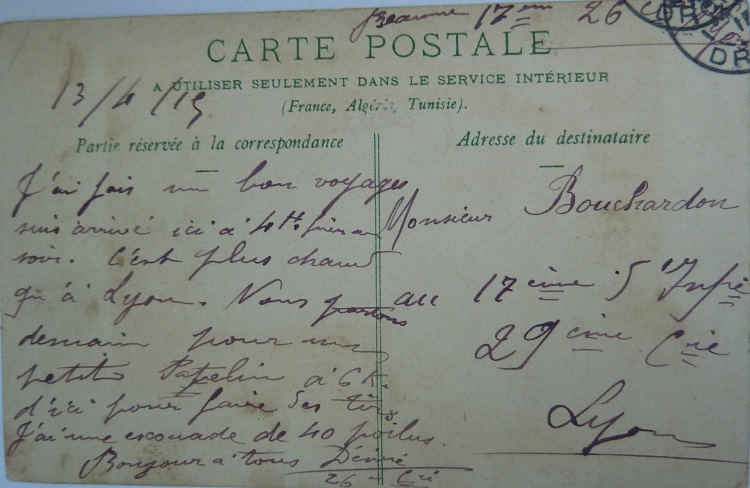 Jeanne 17em 26 c
CARTE POSTALE
A UTILISER SEULEMENT DANS LE SERVICE INTÉRIEUR
(France, Algérie, Tunisie).
13/4/15
Partie réservée à la correspondance
J'ai fais un bon voyages
suis arrivé ici à 4H. du
soir. C'est plus chaud
qu'à Lyon. Nous partons
demain pour un
petit Patelin à 6 K.
d'ici pour faire des tirs
J'ai une escouade de 40 poilus.
Bonjour à tous Désiré
26 - Cie
Adresse du destinataire
Monsieur Bouchardon
au 17ème S Infie
29ème Cie
Lyon
DR
DR